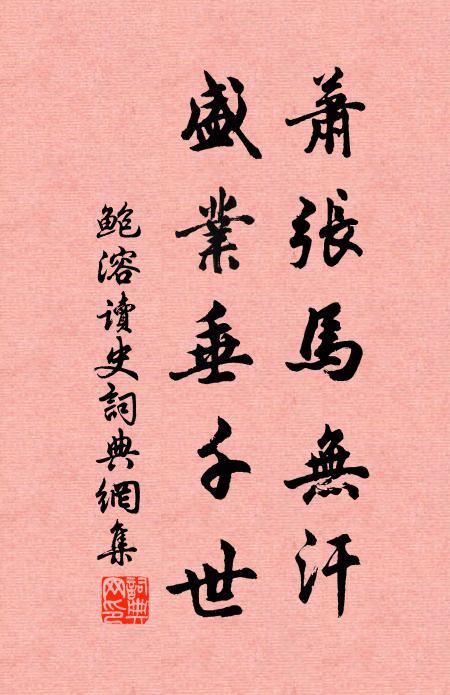 蕭張馬無汗
盛業垂千世
鮑溶讀史詞典網集